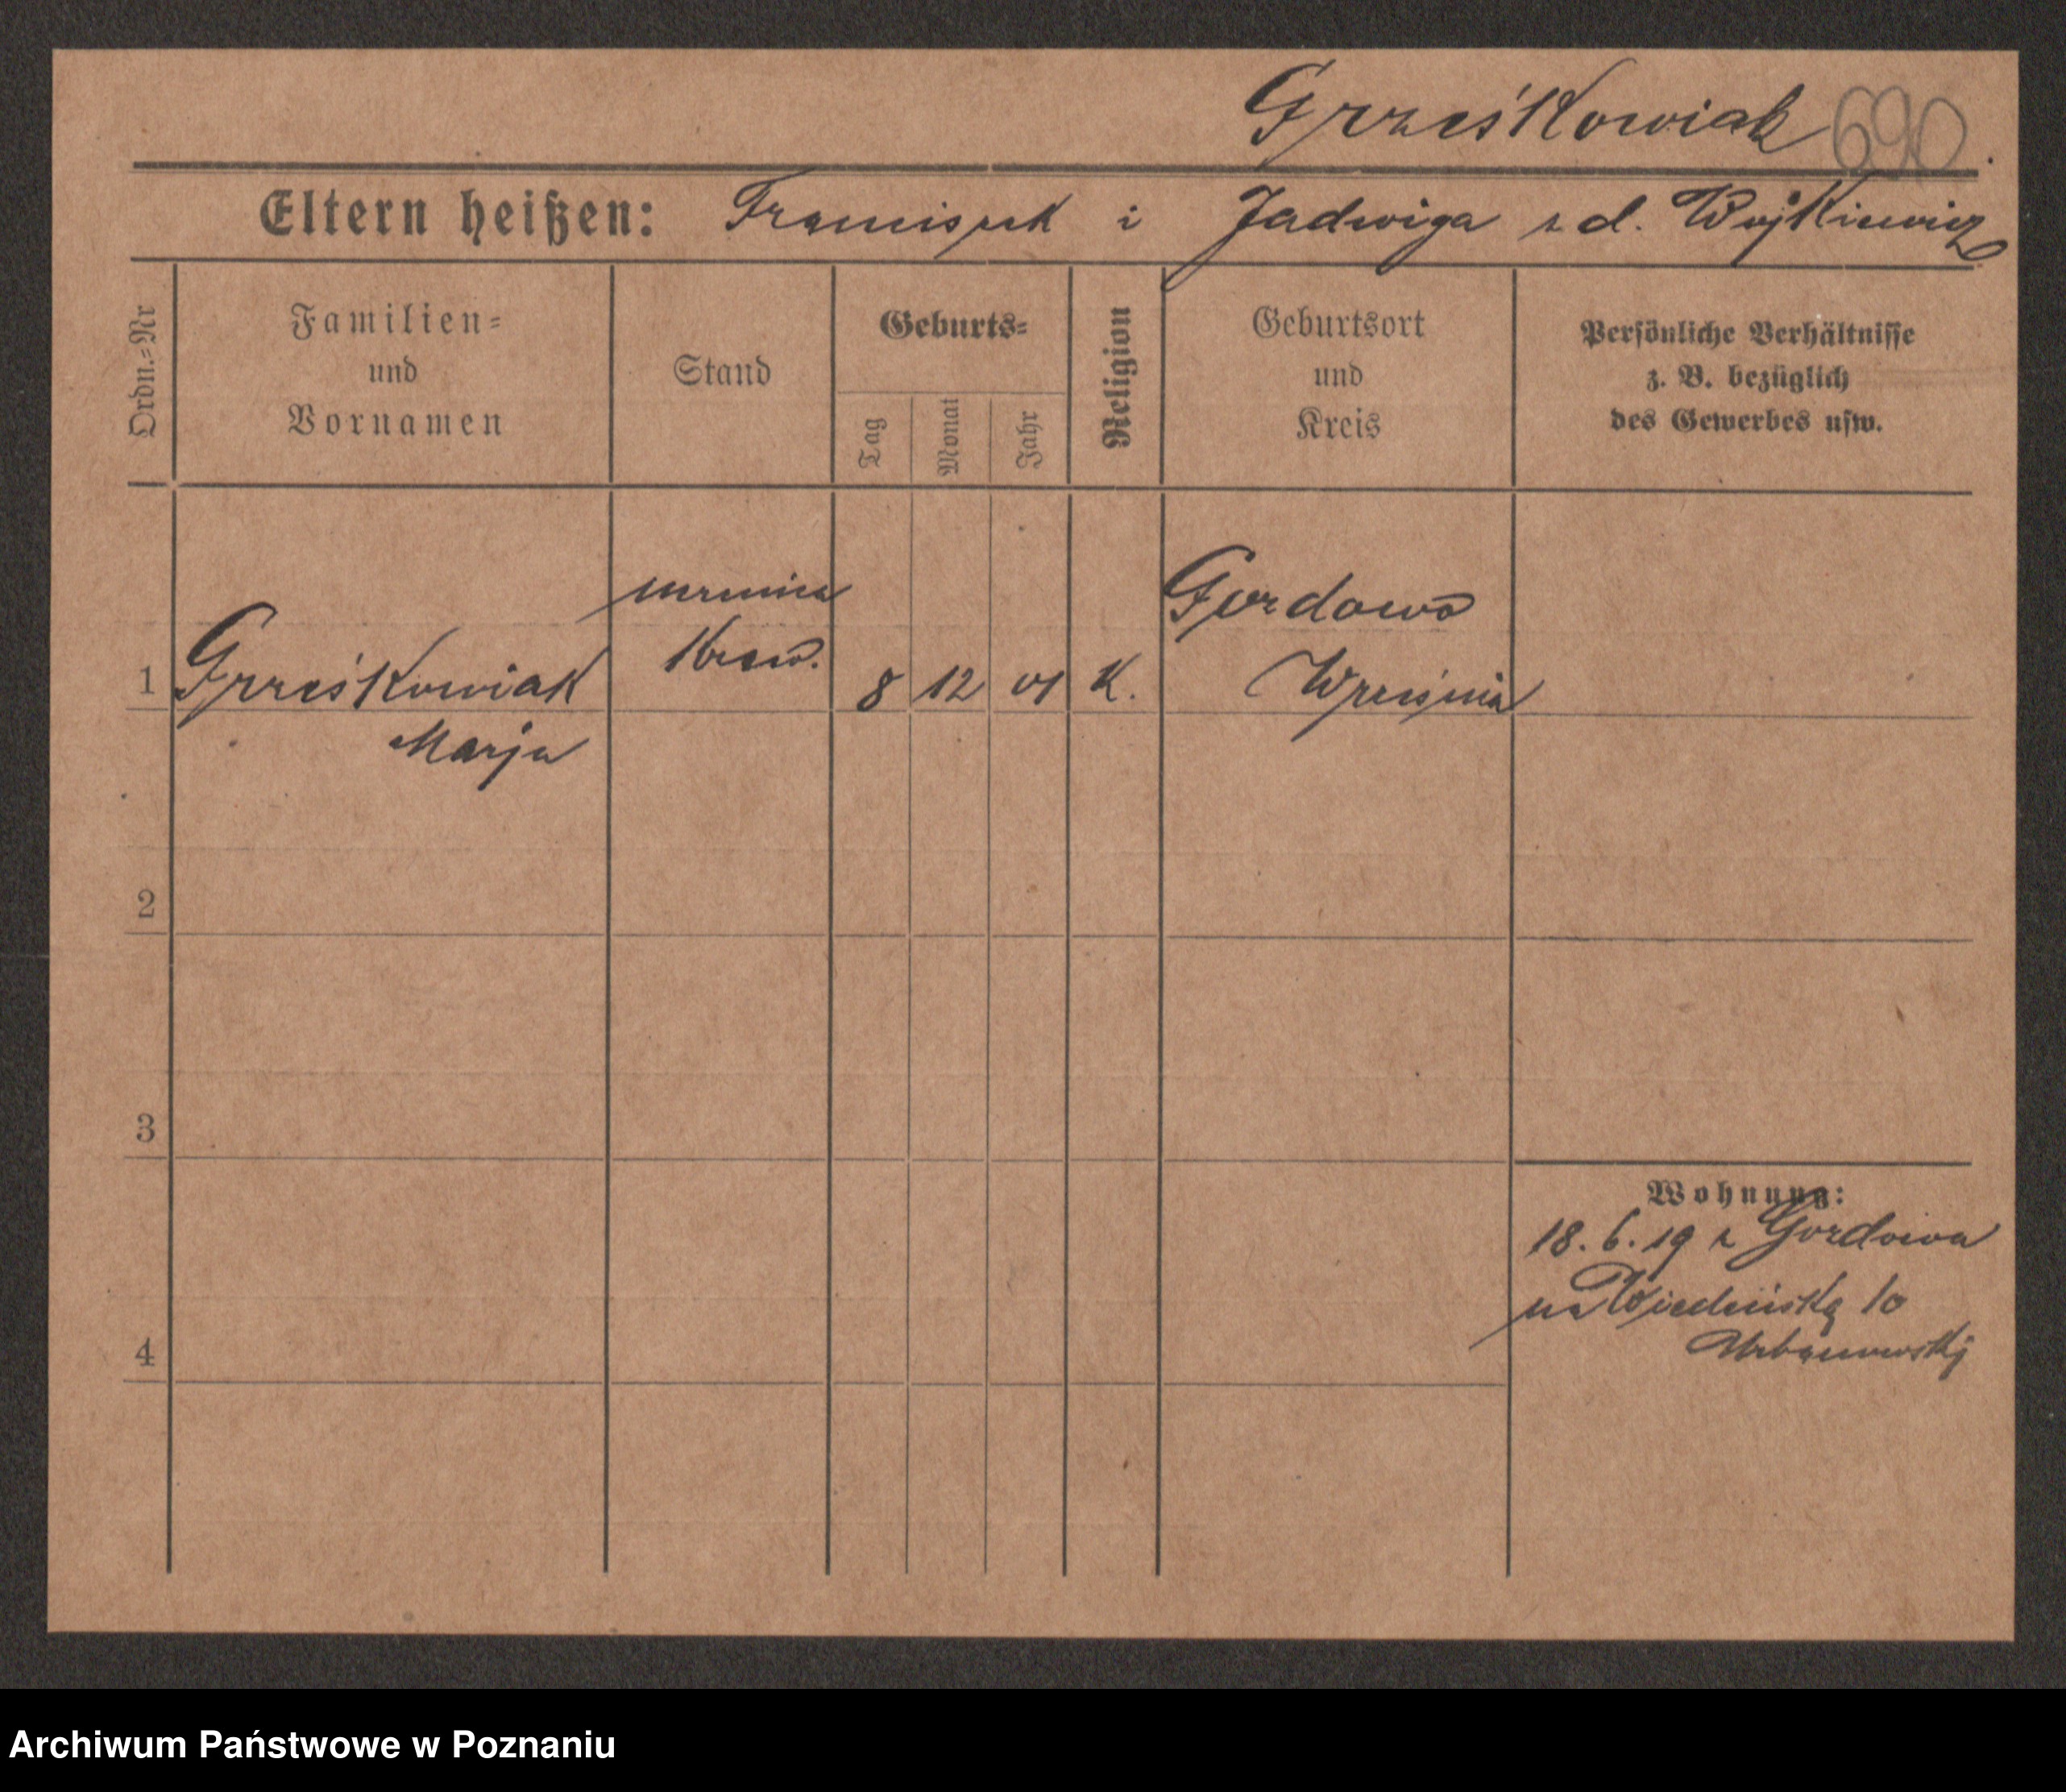 Grześkowiak 690.
Eltern heißen: Franciszek i Jadwiga z d. Wojkiewicz
Ordn.=Nr
Familien=
und
Vornamen
Stand
Geburts=
Tag
Monat
Jahr
Religion
Geburtsort
und
Kreis
Persönliche Verhältnisse
z. B. bezüglich
des Gewerbes usw.
1
Grześkowiak
Marja
uczenica
kraw.
8 12 01 K.
Gozdowo
Września
2
3
4
Wohnung:
18.6.19 z Gozdowa
na Wiedeńską 10
Urbanowskij
Archiwum Państwowe w Poznaniu